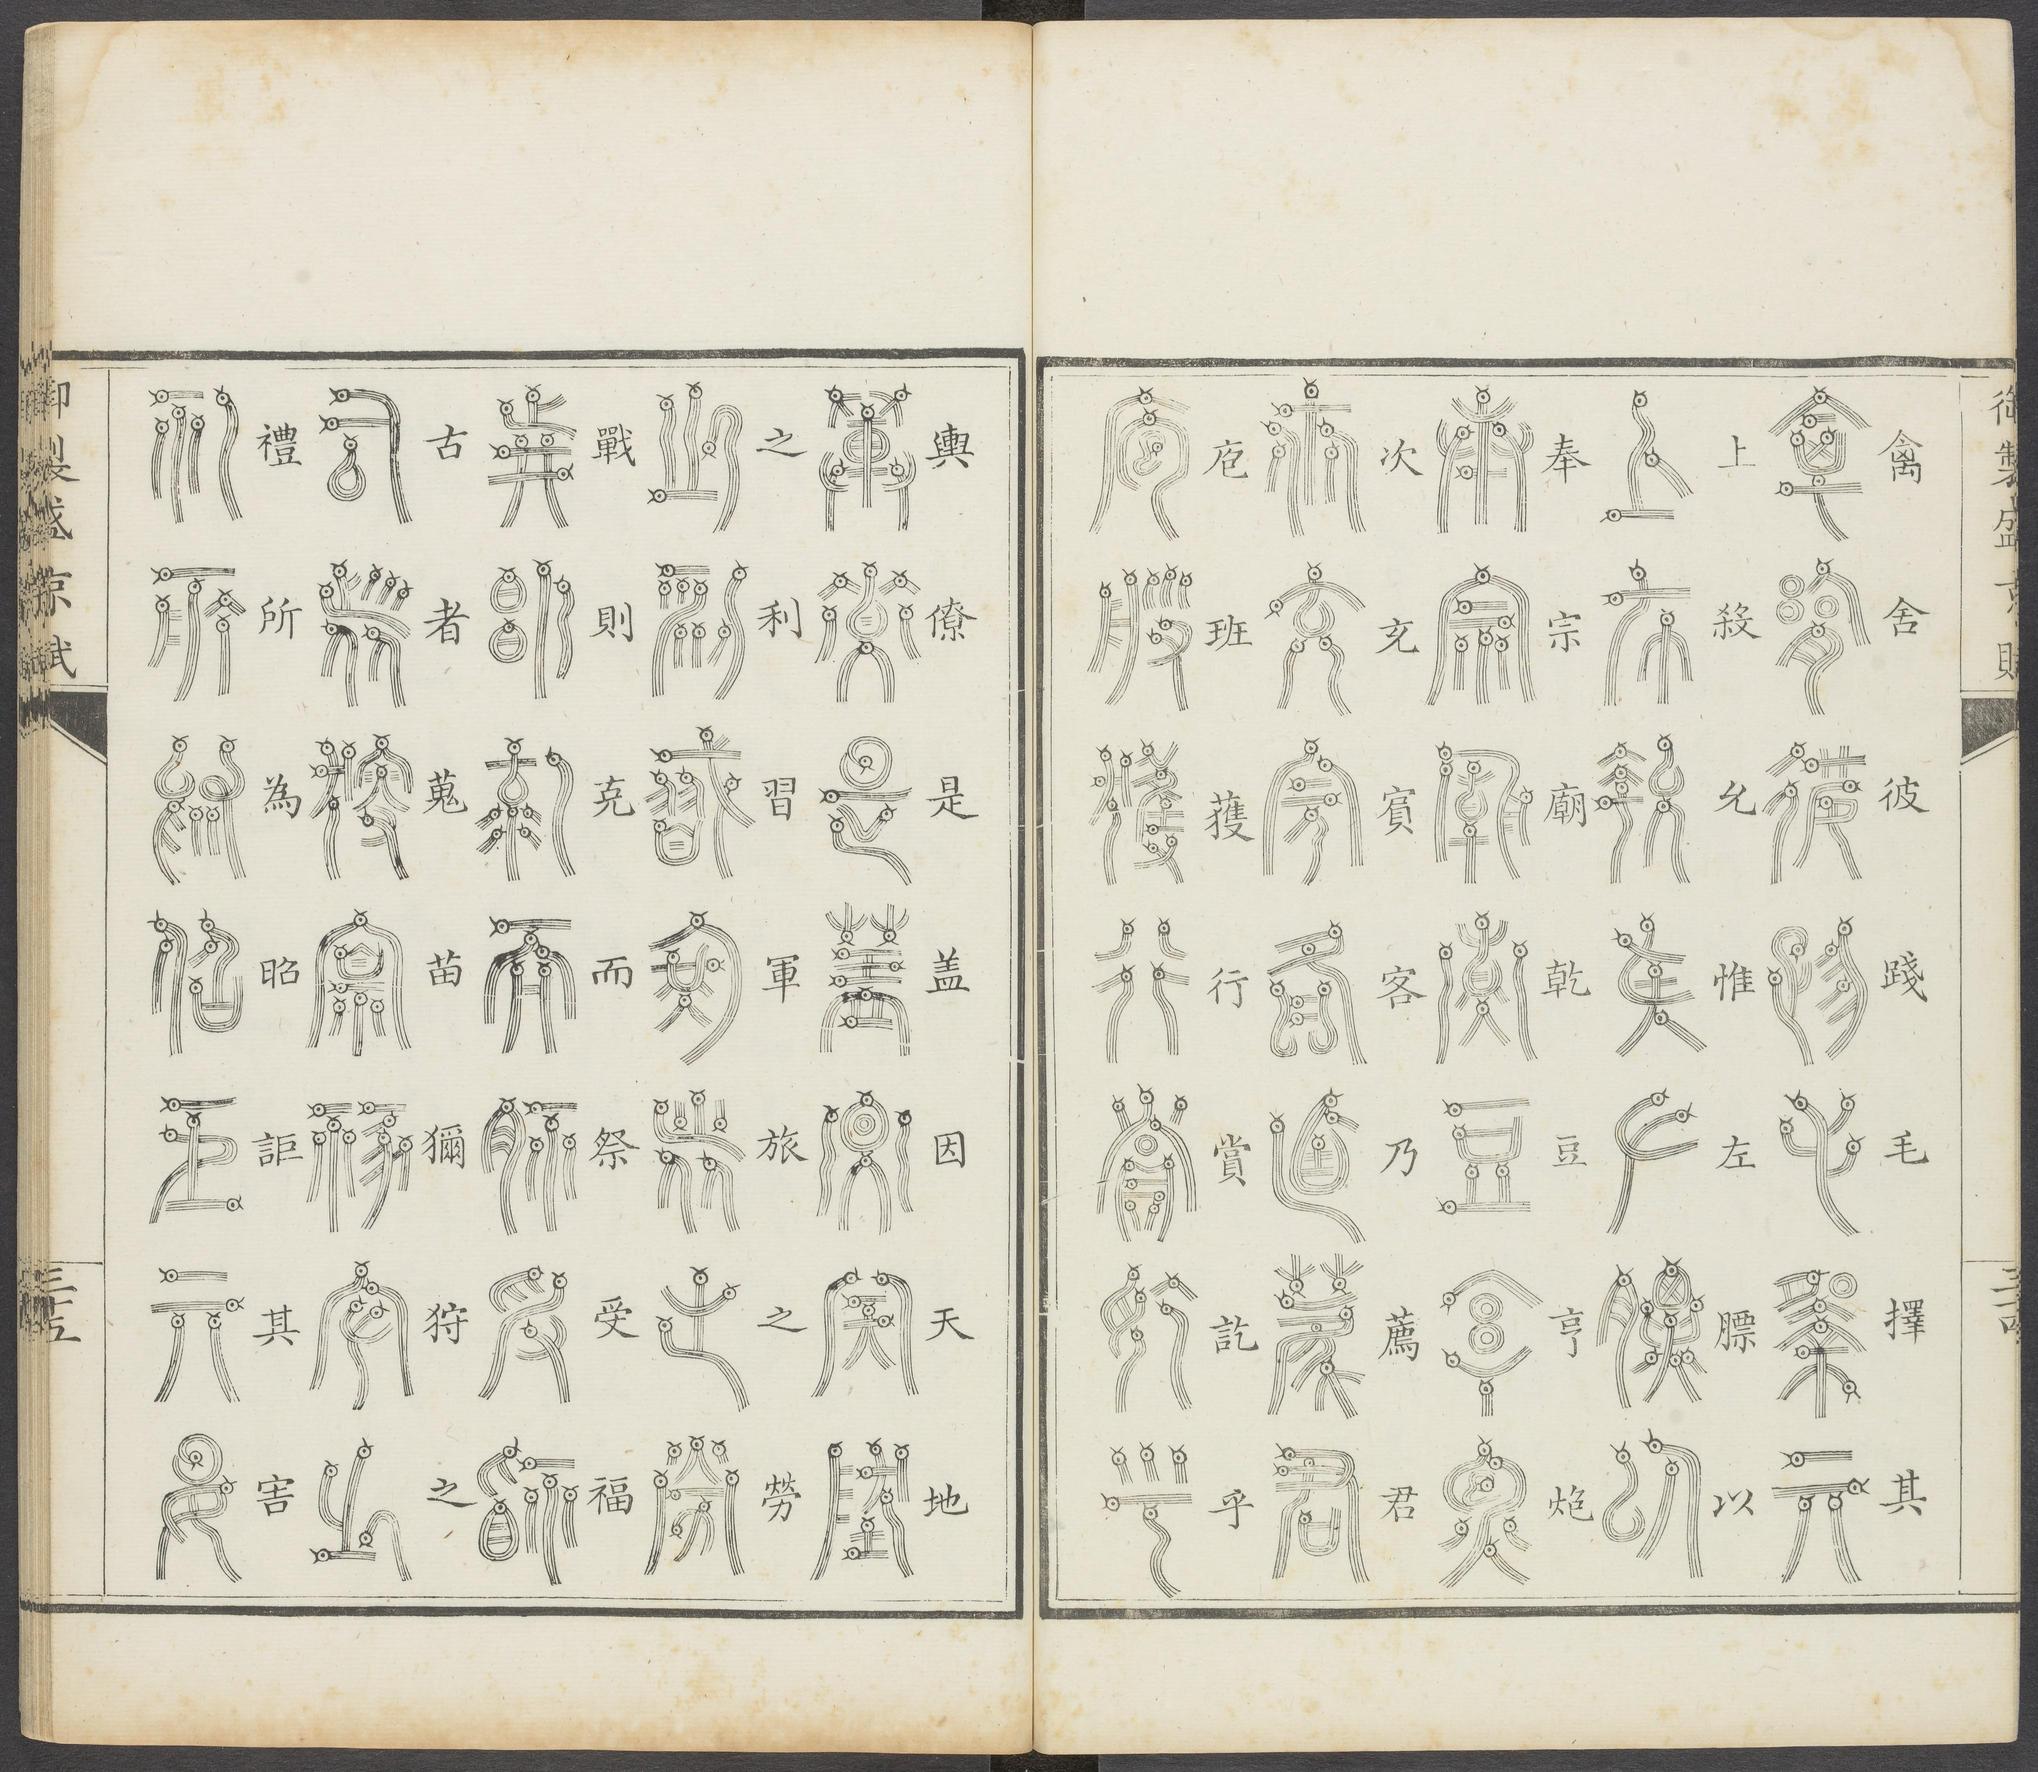 御製盛京賦
禽舍彼踐毛擇其
上殺允惟左膘以
奉宗廟乾豆亨炰
次充賓客乃薦君
庖班獲行賞訖乎
輿僚是盖因天地
之利習軍旅之勞
戰則克而祭受福
古者蒐苗獮狩之
禮所為昭詎其害
御製盛京賦
三十五